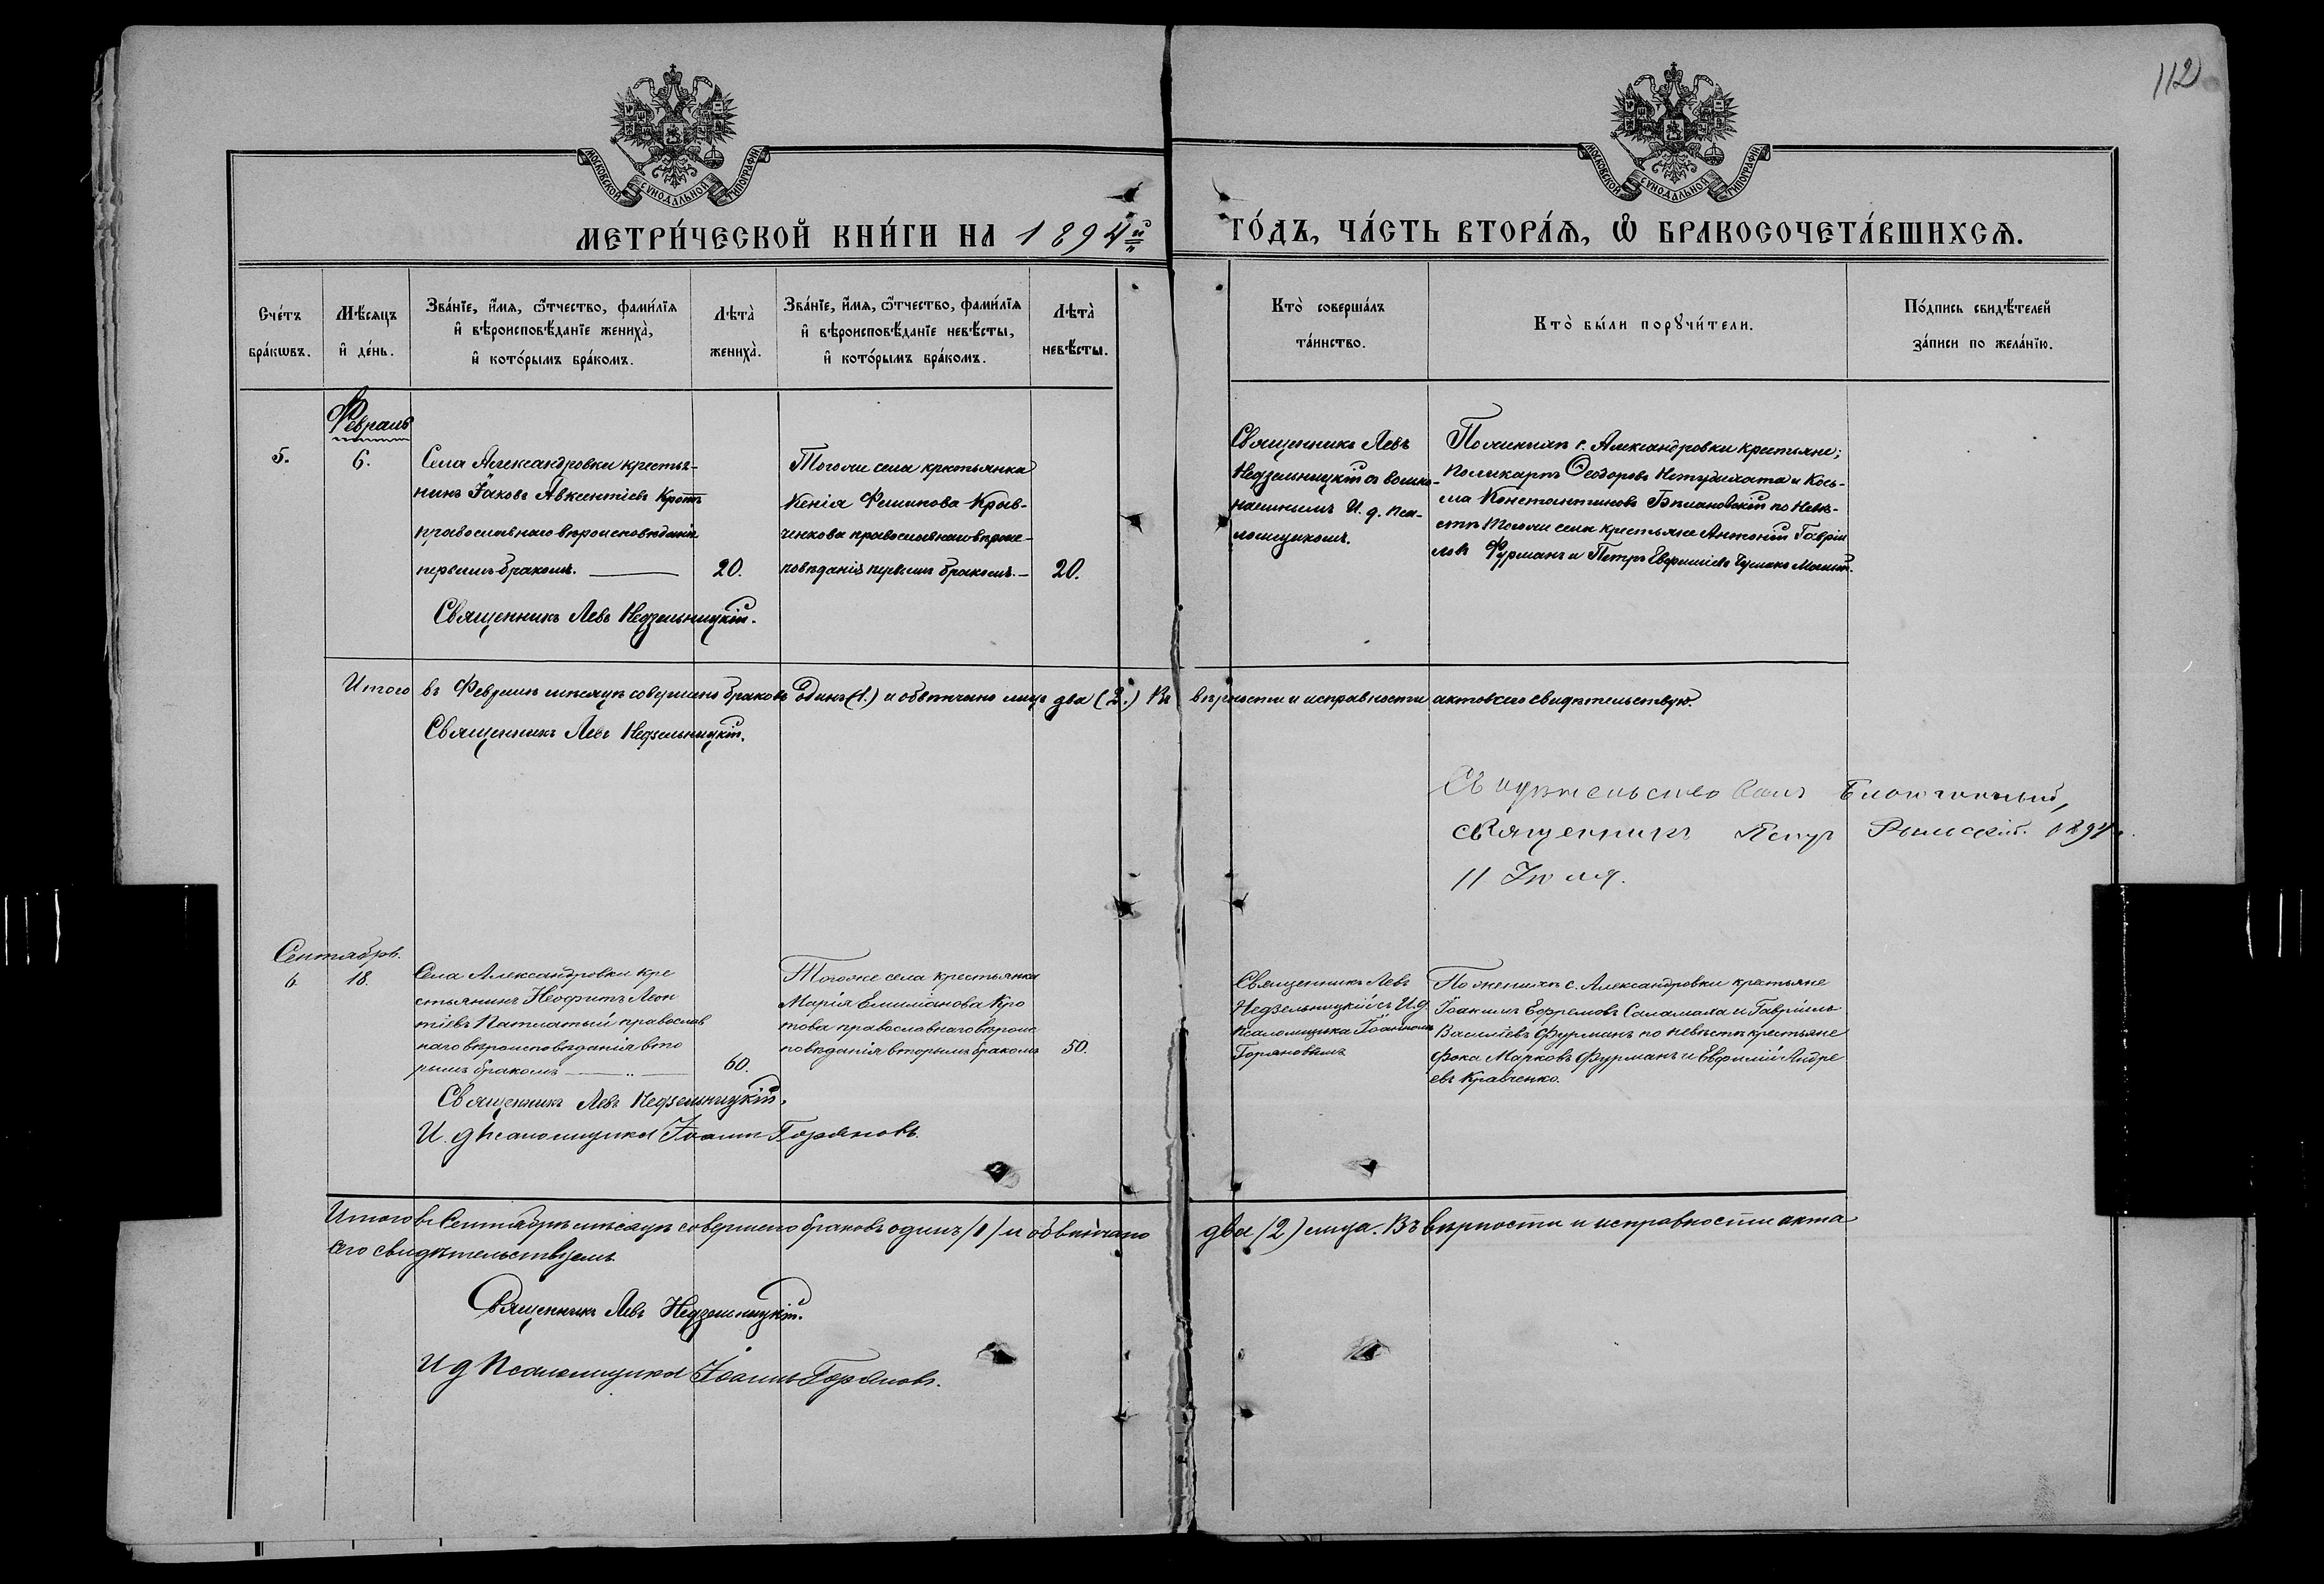 112
МОСКОВСКОЙ СѴНОДАЛЬНОЙ ТИПОГРАФІИ
МОСКОВСКОЙ СѴНОДАЛЬНОЙ ТИПОГРАФІИ
МЕТРИ́ЧЕСКОЙ КНИ́ГИ НА 1894й
ГО́ДЪ, ЧА́СТЬ ВТОРА́Я, Ѡ БРАКОСОЧЕТА́ВШИХСЯ.
Сче́тъ
бра́кѡвъ.
Мѣ́сяцъ
и҆ де́нь.
Зва́нїе, и҆́мя, ѻ҆́тчество, фами́лїя
и҆ вѣроисповѣ́данїе жениха̀,
и҆ кото́рымъ бра́комъ.
Лѣта̀
жениха̀.
Зва́нїе, и҆́мя, ѻ҆́тчество, фами́лїя
и҆ вѣроисповѣ́данїе невѣ́сты,
и҆ кото́рымъ бра́комъ.
Лѣта̀
невѣ́сты.
Кто̀ соверша́лъ
та́инство.
Кто̀ бы́ли порꙋчи́тели.
По́дпись свидѣ́телей
за́писи по жела́нїю.
Февраль
5.
6.
Села Александровки кресть-
нинъ Іаковъ Авксентіевъ Кротъ
православнаго вѣроисповѣданія
первымъ бракомъ.
20.
Тогоже села крестьянка
Ксенія Филипова Крав-
ченкова православнаго вѣроис-
повѣданія первымъ бракомъ.
20.
Священникъ Левъ
Недзельницкій съ вольно-
наемнымъ И. д. пса-
ломщикомъ.
По женихѣ с. Александровки крестьяне;
Поликарпъ Ѳеодоровъ Нетудихата и Кось-
ма Константиновъ Бѣлановскій по Невѣ-
стѣ тогоже села крестьяне Антоній Гаврiи
ловъ Фурманъ и Петръ Евфиміевъ
Священникъ Левъ Недзельницкій.
Итого въ Февралѣ мѣсяцѣ совершено браковъ Одинъ (1.) и обвѣнчано лицъ два (2.) Въ вѣрности и исправности актовъ сихъ свидѣтельствую.
Священникъ Левъ Недзельницкій.
Свидѣтельствовалъ Благочинный,
священникъ Петръ Рыльскій. 1894 г.
11 Іюля.
Сентябрь.
6
18.
Села Александровки кре
стьянинъ Неофитъ Леон
тіевъ Патлатый православ
наго вѣроисповѣданія вто
рымъ бракомъ
60.
Тогоже села крестьянка
Марія Емиліанова Кро
това православнаго вѣроис
повѣданія вторымъ бракомъ
50.
Священникъ Левъ
Недзельницкій съ И. д.
псаломщика Іоанномъ
Горяновымъ
По женихѣ с. Александровки крестьяне
Іоакимъ Ефремовъ Саламаха и Гавріилъ
Василіевъ Фурманъ по невѣстѣ крестьяне
Фока Марковъ Фурманъ и Евфимій Андре
евъ Кравченко.
Священникъ Левъ Недзельницкій.
И. д псаломщика Іоаннъ Горяновъ.
Итого въ Сентябрѣ мѣсяцѣ совершено браковъ одинъ /1/ и обвѣнчано два /2/ лица. Въ вѣрности и исправности акта
сего свидѣтельствуемъ.
Священникъ Левъ Недзельницкій.
И д Псаломщика Іоаннъ Горяновъ.